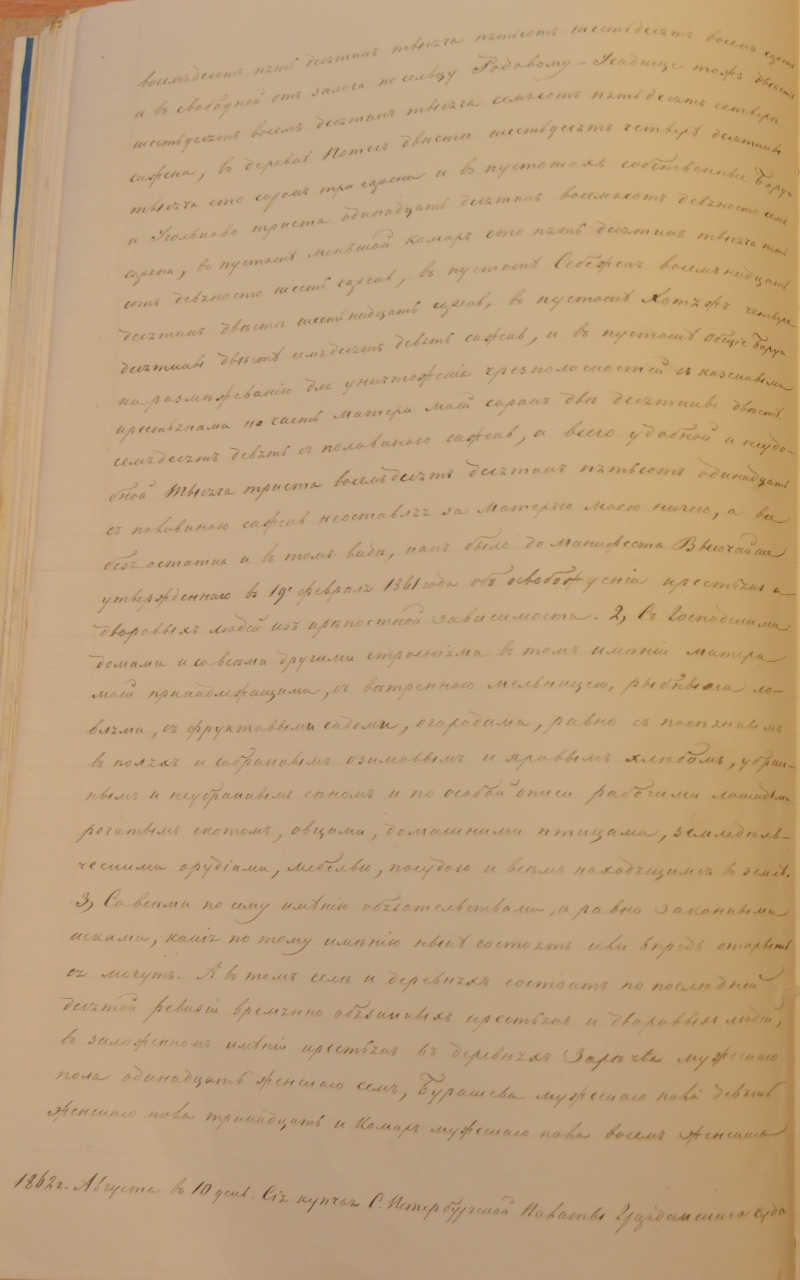 восемьдесятъ пять десятинъ тысяча пятьсотъ шестьдесятъ восемь сажень
и въ свободной отъ залога по сельцу Родовому-Усадище тожъ двѣсти
шестьдесятъ восемь десятинъ тысяча семьсотъ пятьдесятъ четыре
сажени, въ деревнѣ двѣсти шестьдесятъ четыре десятины
тысяча сто сорокъ три сажени и въ пустошахъ собственные
и триста одинадцать десятинъ восемьсотъ девяносто семь
сажень, въ пустоши Меньшой Комаръ сто пять десятинъ тысяча
сотъ девяносто шесть сажень, въ пустоши восемьнадцать
десятинъ двѣсти шестьнадцать сажень, въ пустоши четыре
десятины двѣсти семьдесятъ девять сажень, и въ пустоши Общіе
по размѣжеванію для уничтоженія чрезполосностей съ казенными
крестьянами на часть матери моей сорокъ двѣ десятины двѣсти
семьдесятъ девять съ половиною сажень, а всего удобной и неудо-
бной тысяча триста восемьдесятъ десятинъ пятьсотъ одинадцать
съ половиною сажень неоставляя за Матерью моею ничего, а все
безъ остатка и въ томъ видѣ, какъ было до Манифеста Высочайше
утвержденнаго въ 19е февраля 1861 года объ освобожденіи крестьянъ и
дворовыхъ людей изъ крѣпостной зависимости. 2, Съ Господскими
домами и со всѣми другими строеніями въ томъ имѣніи матери
моей принадлежащими, съ вѣтренною мельницею, рыбными ло-
влями, съ фруктовыми садами, огородами, равно съ посѣяннымъ
въ поляхъ и собраннымъ озимовымъ и яровымъ хлѣбомъ, убран-
нымъ и неубраннымъ сѣномъ и по особой описи рабочими лошадьми
рогатымъ скотомъ, овцами, домашними птицами, земледѣль-
ческими орудіями, мебелью, посудою и всѣмъ находящимся въ землѣ.
3, Со всѣми по сему имѣнію обязательствами, а равно законными
исками, какіе по тому имѣнію нынѣ состоятъ или впредь открыть
ся могутъ. А въ томъ селѣ и деревняхъ состоитъ по послѣдней
десятой ревизіи временно обязанныхъ крестьянъ и дворовыхъ людей,
въ заложенномъ имѣніи крестьянъ въ деревняхъ Заручье мужескаго
пола одинадцать женскаго семь, Бурашева мужескаго пола девять
женскаго пола тринадцать и Комаръ мужескаго пола восемь женскаго
1862г. Августа въ 10 день. Сія купчая С. Петербургской Палаты Гражданскаго Суда